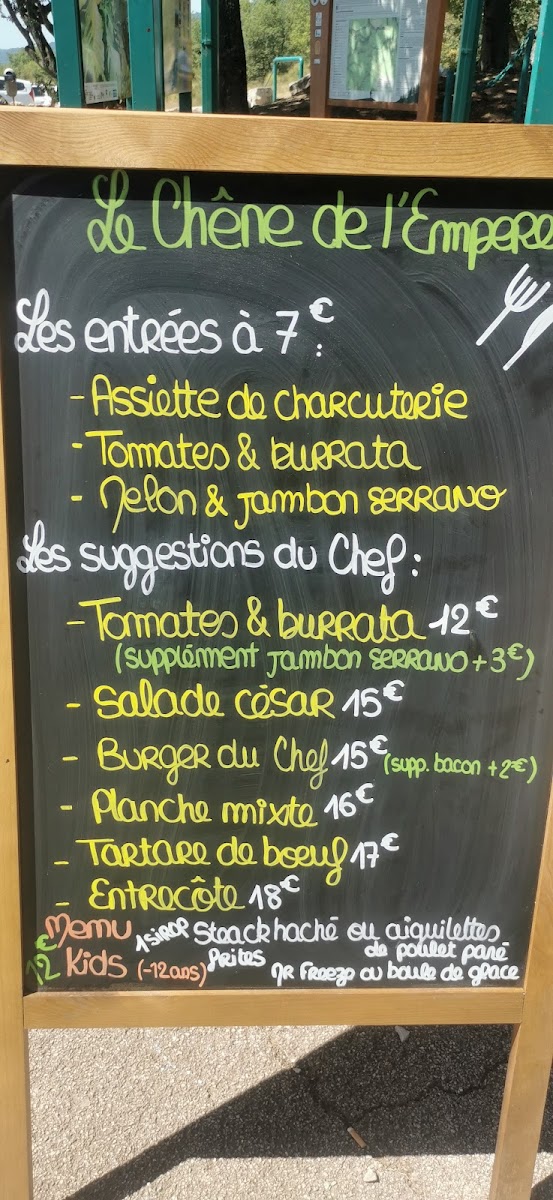 Le Chêne de l'Empere
Les entrées à 7€ :
- Assiette de charcuterie
- Tomates & burrata
- Melon & jambon serrano
Les suggestions du Chef :
- Tomates & burrata 12€
(supplément jambon serrano + 3€)
- Salade césar 15€
- Burger du Chef 15€ (supp. bacon + 2€)
- Planche mixte 16€
- Tartare de boeuf 17€
- Entrecôte 18€
Menu Kids (-12ans) 12€
1 sirop
Steack haché ou aiguilettes de poulet pané
frites
Mr Freeze ou boule de glace